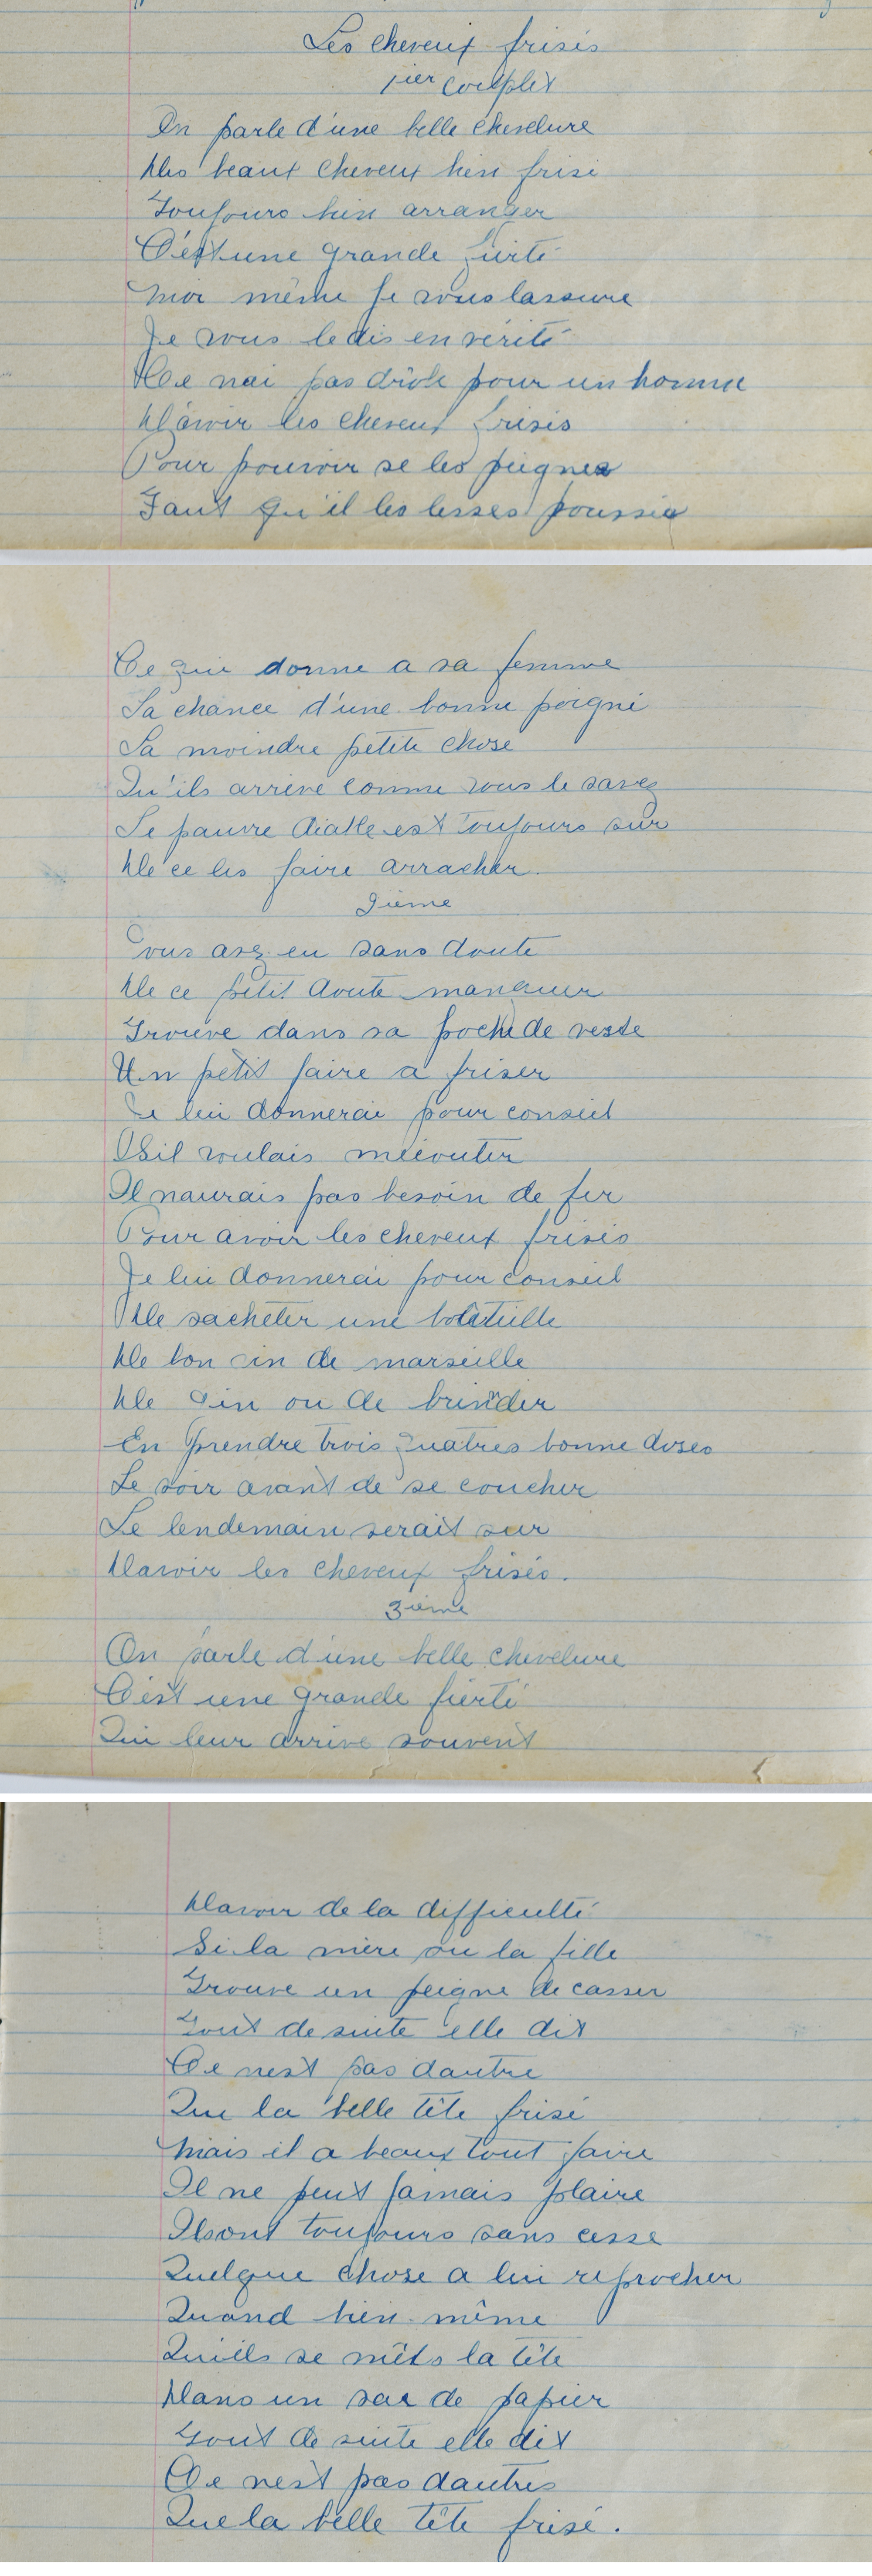 Les cheveux frisés
1ier couplet
On parle d'une belle chevelure
Des beaux cheveux bien frisé
Toujours bien arranger
C'est une grande fierté
Moi même je vous lassure
Je vous ledis en vérité
Ce nai pas drôle pour un homme
D'avoir les cheveux frisés
Pour pouvoir se les peigner
Faut qu'il les lesses poussier
Ce qui donne a sa femme
La chance d'une bonne poigné
La moindre petite chose
Qu'ils arrive comme vous le savez
Le pauvre diable est toujours sur
De ce les faire arracher.
2ième
Vous avez eu sans doute
De ce petit doute manquer
Trouve dans sa poche de veste
Un petit faire a friser
Je lui donnerai pour conseil
Sil voulais mécouter
Il naurais pas besoin de fer
Pour avoir les cheveux frisés
Je lui donnerai pour conseil
De sacheter une boteille
De bon vin de marseille
De Gin ou de
En prendre trois quatres bonne doses
Le soir avant de se coucher
Le lendemain serait sur
Davoir les cheveux frisés.
3ième
On parle d'une belle chevelure
C'est une grande fierté
Qui leur arrive souvent
Davoir de la difficulté
Si la mère ou la fille
Trouve un peigne de casser
Tout de suite elle dit
Ce nest pas dautre
Que la belle tête frisé
Mais il a beaux tout faire
Il ne peut jamais plaire
Ilsont toujours sans cesse
Quelque chose a lui reprocher
Quand bien même
Qu'ils se mêts la tête
Dans un sac de papier
Tout de suite elle dit
Ce nest pas dautres
Que la belle tête frisé.